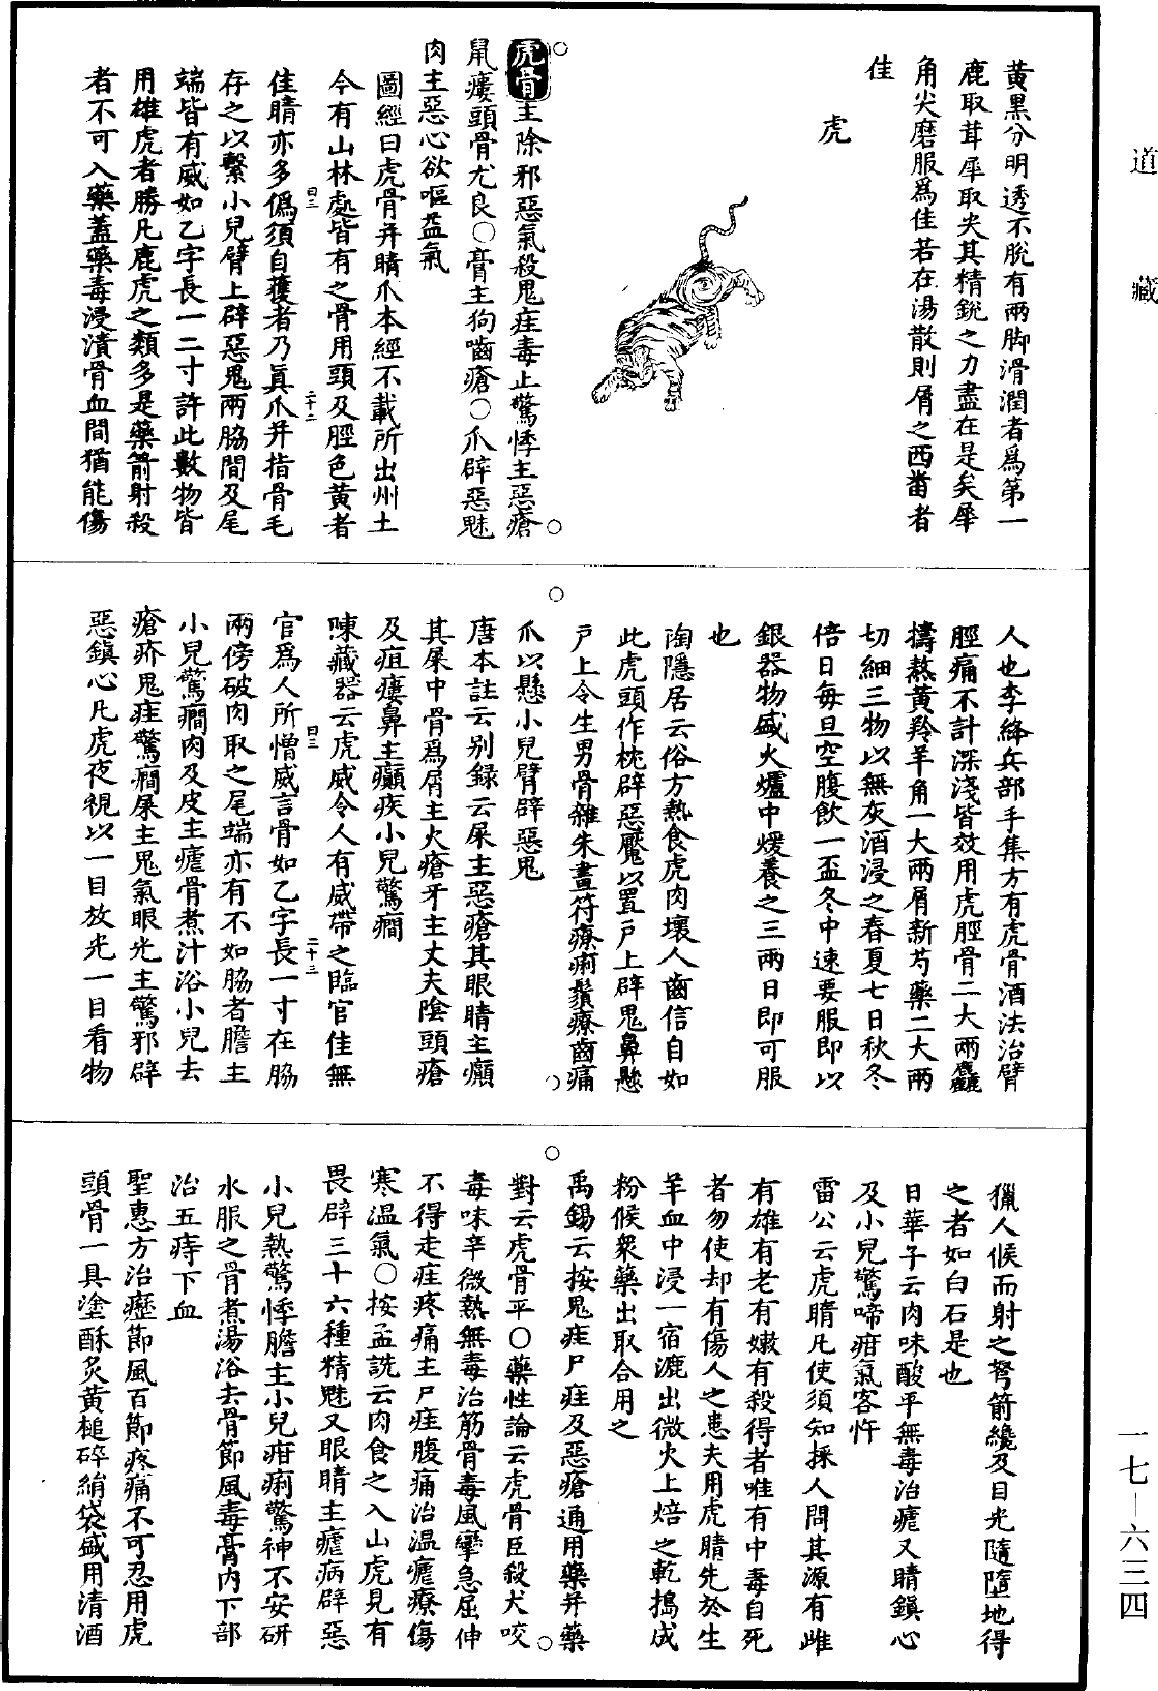 道藏
黃黑分明透不脫有兩脚滑潤者爲第一
鹿取茸犀取尖其精銳之力盡在是矣犀
角尖磨服爲佳若在湯散則屑之西畨者
佳
虎
虎骨主除邪惡氣殺鬼疰毒止驚悸主惡瘡
鼠瘻頭骨尤良○膏主狗齧瘡○爪辟惡魅
肉主惡心欲嘔益氣
圖經曰虎骨并睛爪本經不載所出州土
今有山林處皆有之骨用頭及脛色黃者
佳睛亦多僞須自獲者乃眞爪并指骨毛
存之以繫小兒臂上辟惡鬼兩脇間及尾
端皆有威如乙字長一二寸許此數物皆
用雄虎者勝凡鹿虎之類多是藥箭射殺
者不可入藥蓋藥毒浸漬骨血間猶能傷
曰三
二十二
人也李絳兵部手集方有虎骨酒法治臂
脛痛不計深淺皆效用虎脛骨二大兩麤
擣熬黃羚羊角一大兩屑新芍藥二大兩
切細三物以無灰酒浸之春夏七日秋冬
倍日每旦空腹飲一盃冬中速要服即以
銀器物盛火爐中煖養之三兩日即可服
也
陶隱居云俗方熱食虎肉壞人齒信自如
此虎頭作枕辟惡魘以置戶上辟鬼鼻懸
戶上令生男骨雜朱畫符療痢鬚療齒痛
爪以懸小兒臂辟惡鬼
唐本註云别録云屎主惡瘡其眼睛主癲
其屎中骨爲屑主火瘡牙主丈夫陰頭瘡
及疽瘻鼻主癲疾小兒驚癎
陳藏器云虎威令人有威帶之臨官佳無
官爲人所憎威言骨如乙字長一寸在脇
兩傍破肉取之尾端亦有不如脇者膽主
小兒驚癎肉及皮主瘧骨煮汁浴小兒去
瘡疥鬼疰驚癎屎主鬼氣眼光主驚邪辟
惡鎮心凡虎夜視以一目放光一目看物
曰三
二十三
獵人候而射之弩箭纔及目光隨墮地得
之者如白石是也
日華子云肉味酸平無毒治瘧又睛鎮心
及小兒驚啼疳氣客忤
雷公云虎睛凡使須知採人問其源有雌
有雄有老有嫩有殺得者唯有中毒自死
者勿使却有傷人之患夫用虎睛先於生
羊血中浸一宿漉出微火上焙之乾搗成
粉候衆藥出取合用之
禹錫云按鬼疰尸疰及惡瘡通用藥并藥
對云虎骨平○藥性論云虎骨臣殺犬咬
毒味辛微熱無毒治筋骨毒風攣急屈伸
不得走疰疼痛主尸疰腹痛治溫瘧療傷
寒溫氣○按孟詵云肉食之入山虎見有
畏辟三十六種精魅又眼睛主瘧病辟惡
小兒熱驚悸膽主小兒疳痢驚神不安研
水服之骨煮湯浴去骨節風毒膏內下部
治五痔下血
聖惠方治歷節風百節疼痛不可忍用虎
頭骨一具塗酥炙黃槌碎絹袋盛用清酒
一七—六三四